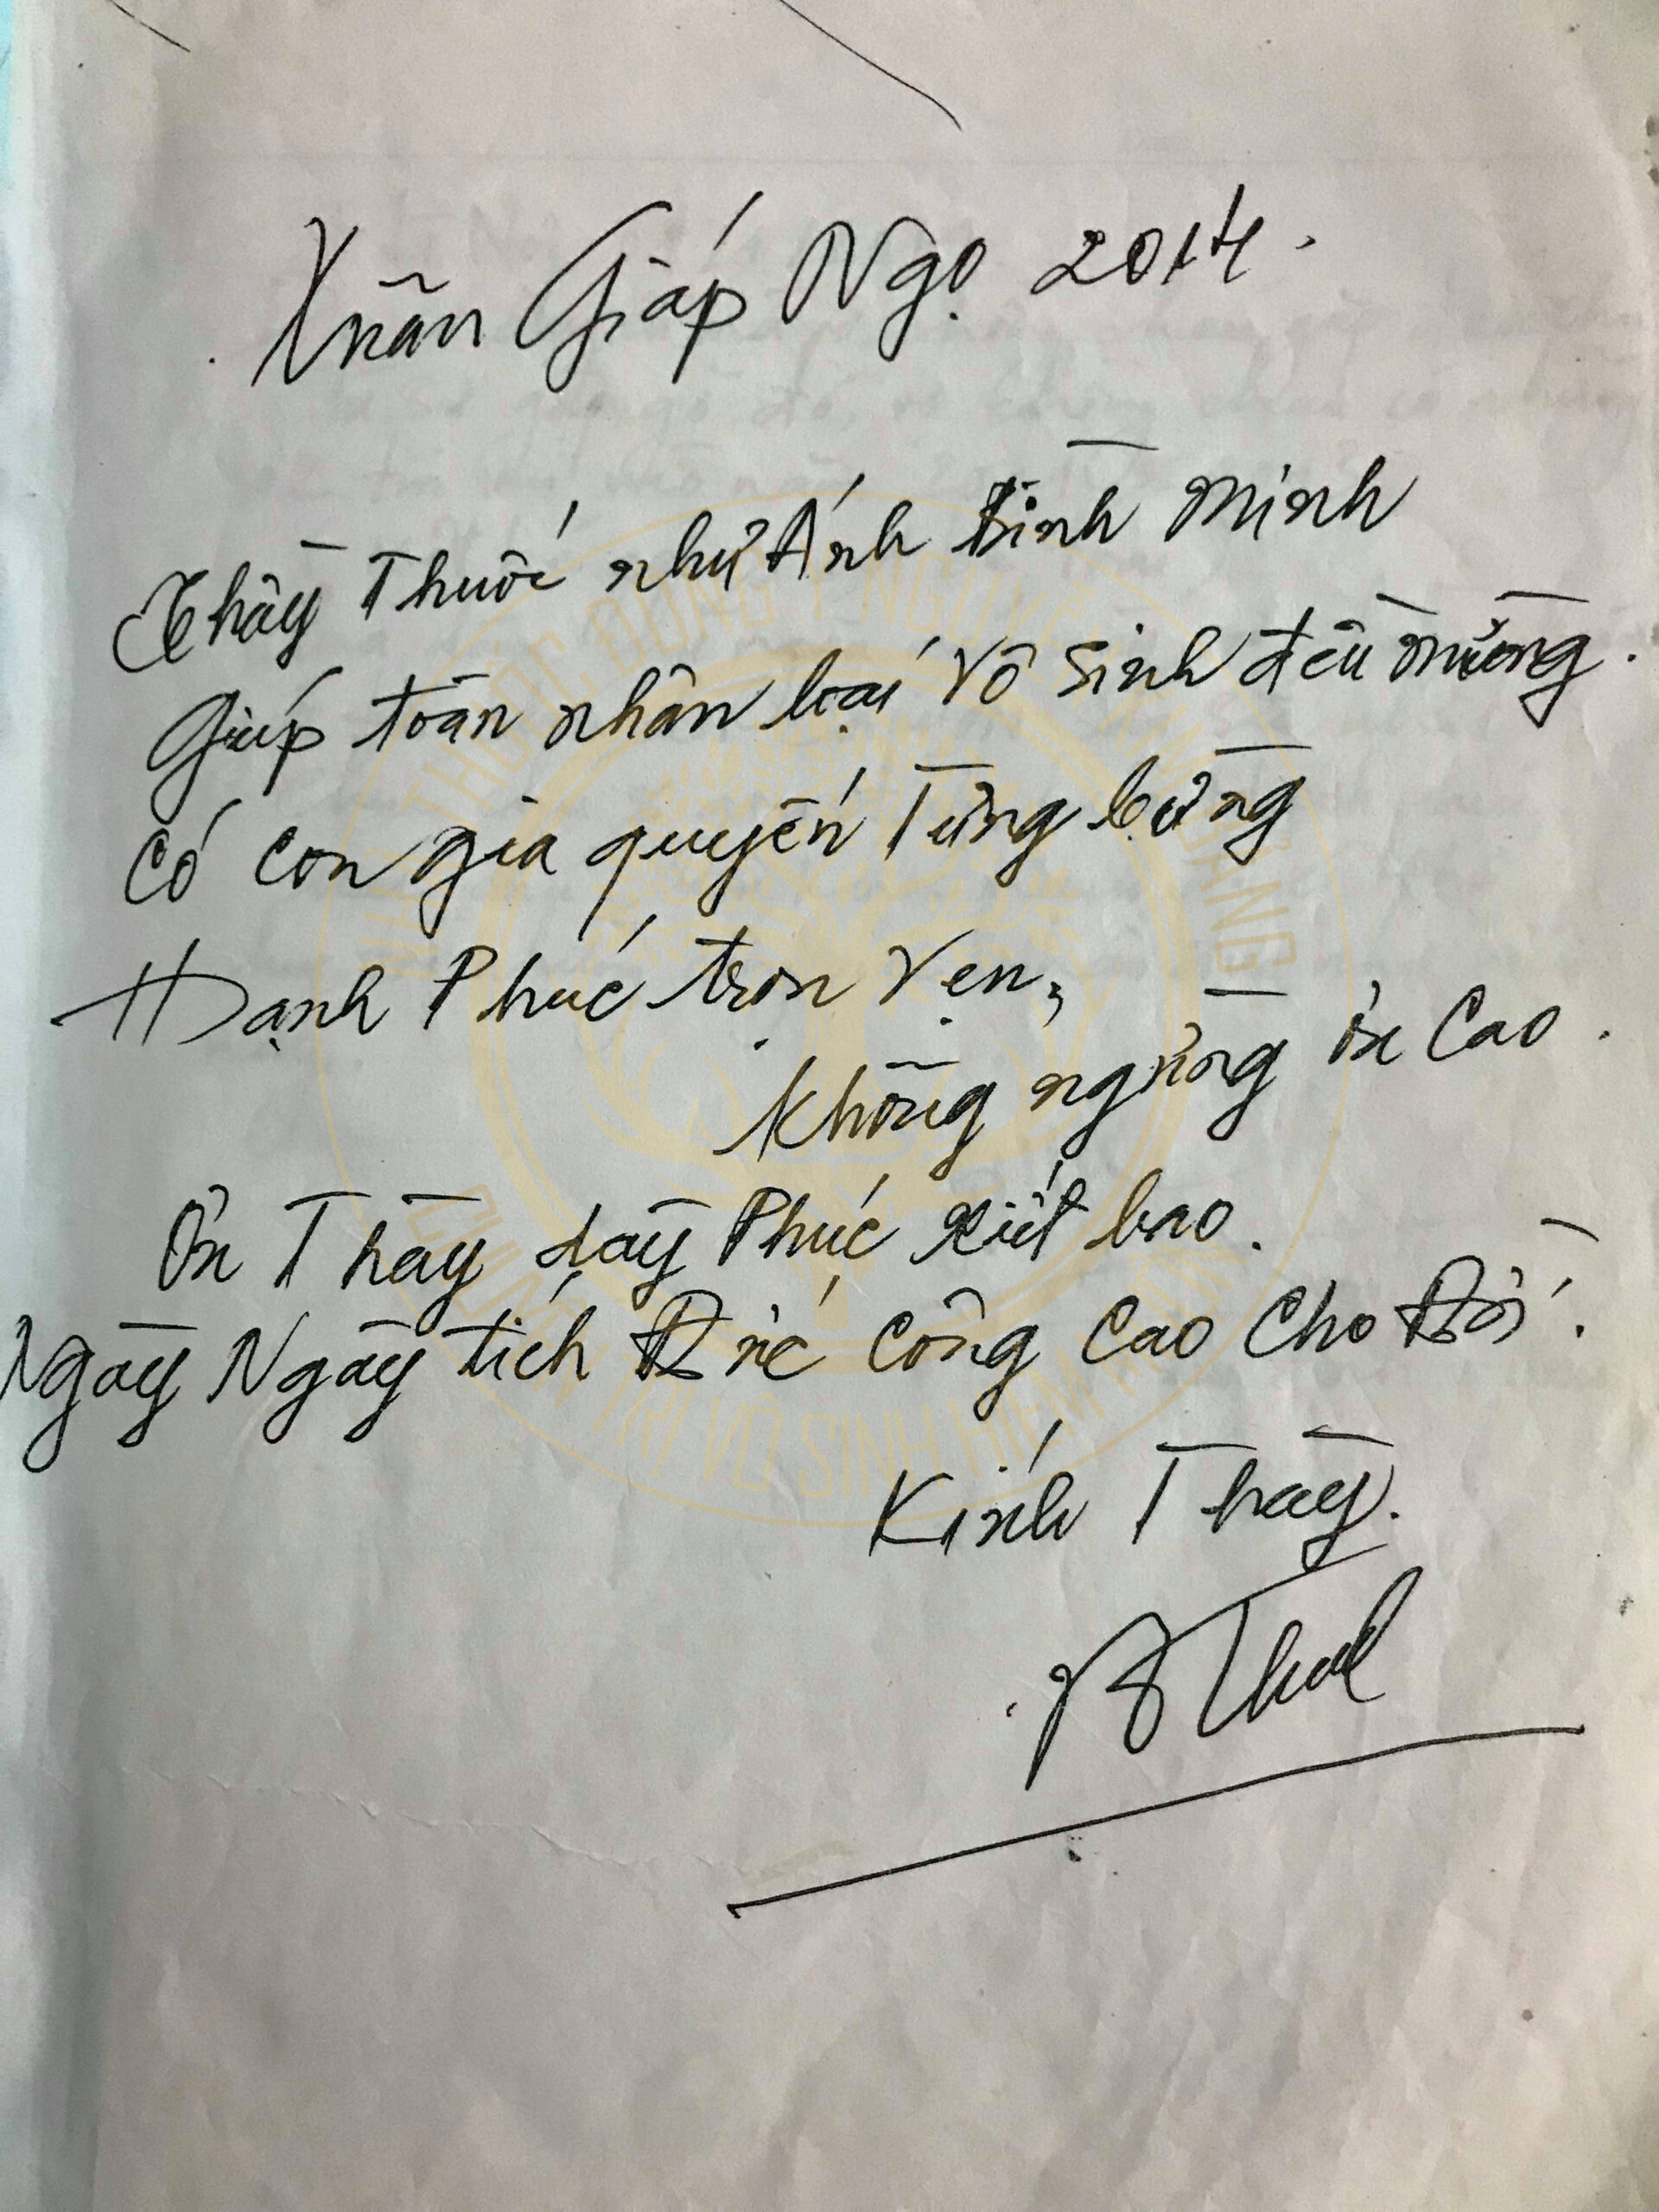 Xuân Giáp Ngọ 2014.
Thầy Thuốc như Ánh Bình Minh
Giúp toàn nhân loại Vô Sinh đều mừng.
Có con gia quyến Từng bừng
Hạnh Phúc trọn Vẹn,
Không ngừng ơn Cao.
Ơn Thầy dầy Phúc xiết bao.
Ngày Ngày tích Đức Công Cao Cho Đời.
Kính Thầy.